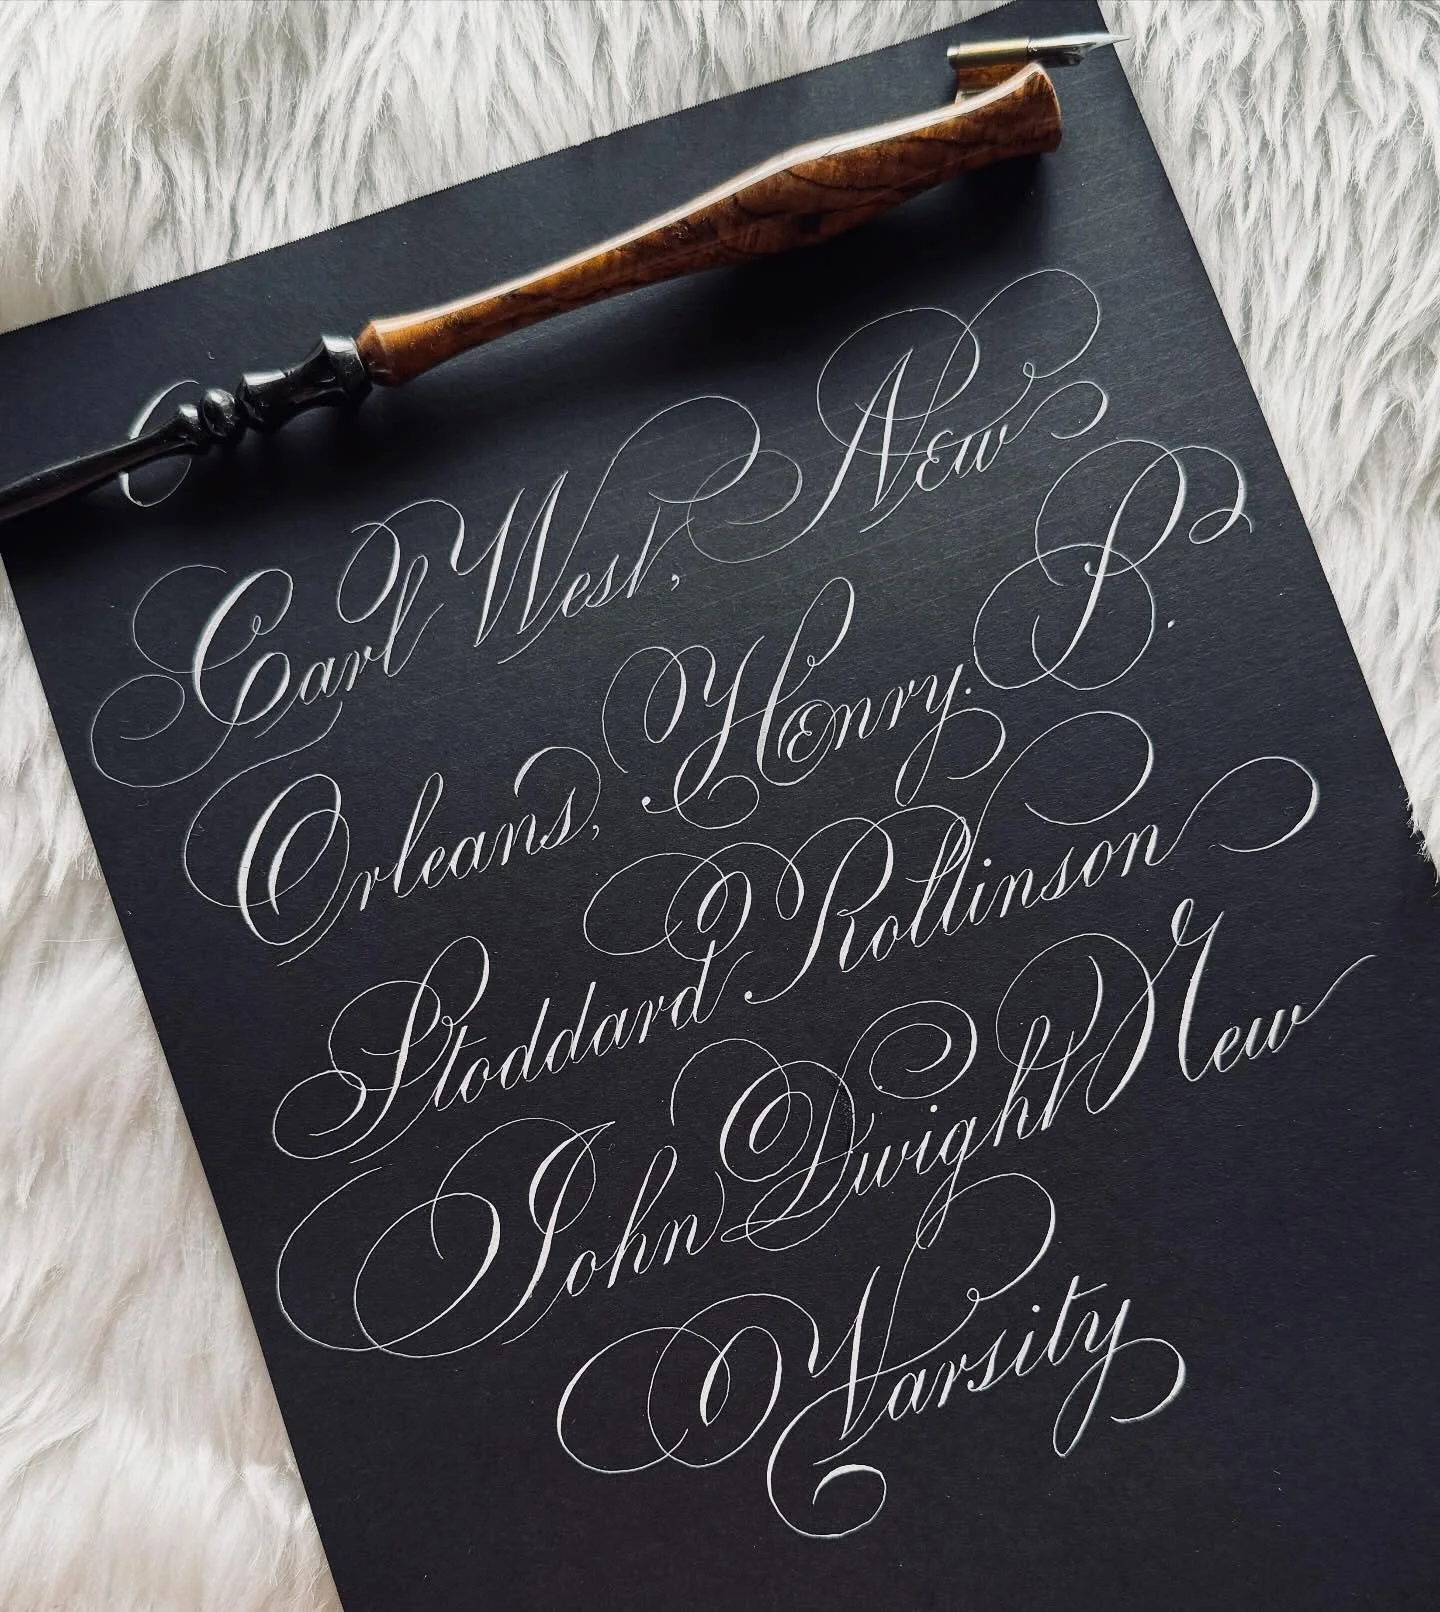 Carl West, New
Orleans, Henry. P.
Stoddard Rollinson
John Dwight New
Varsity